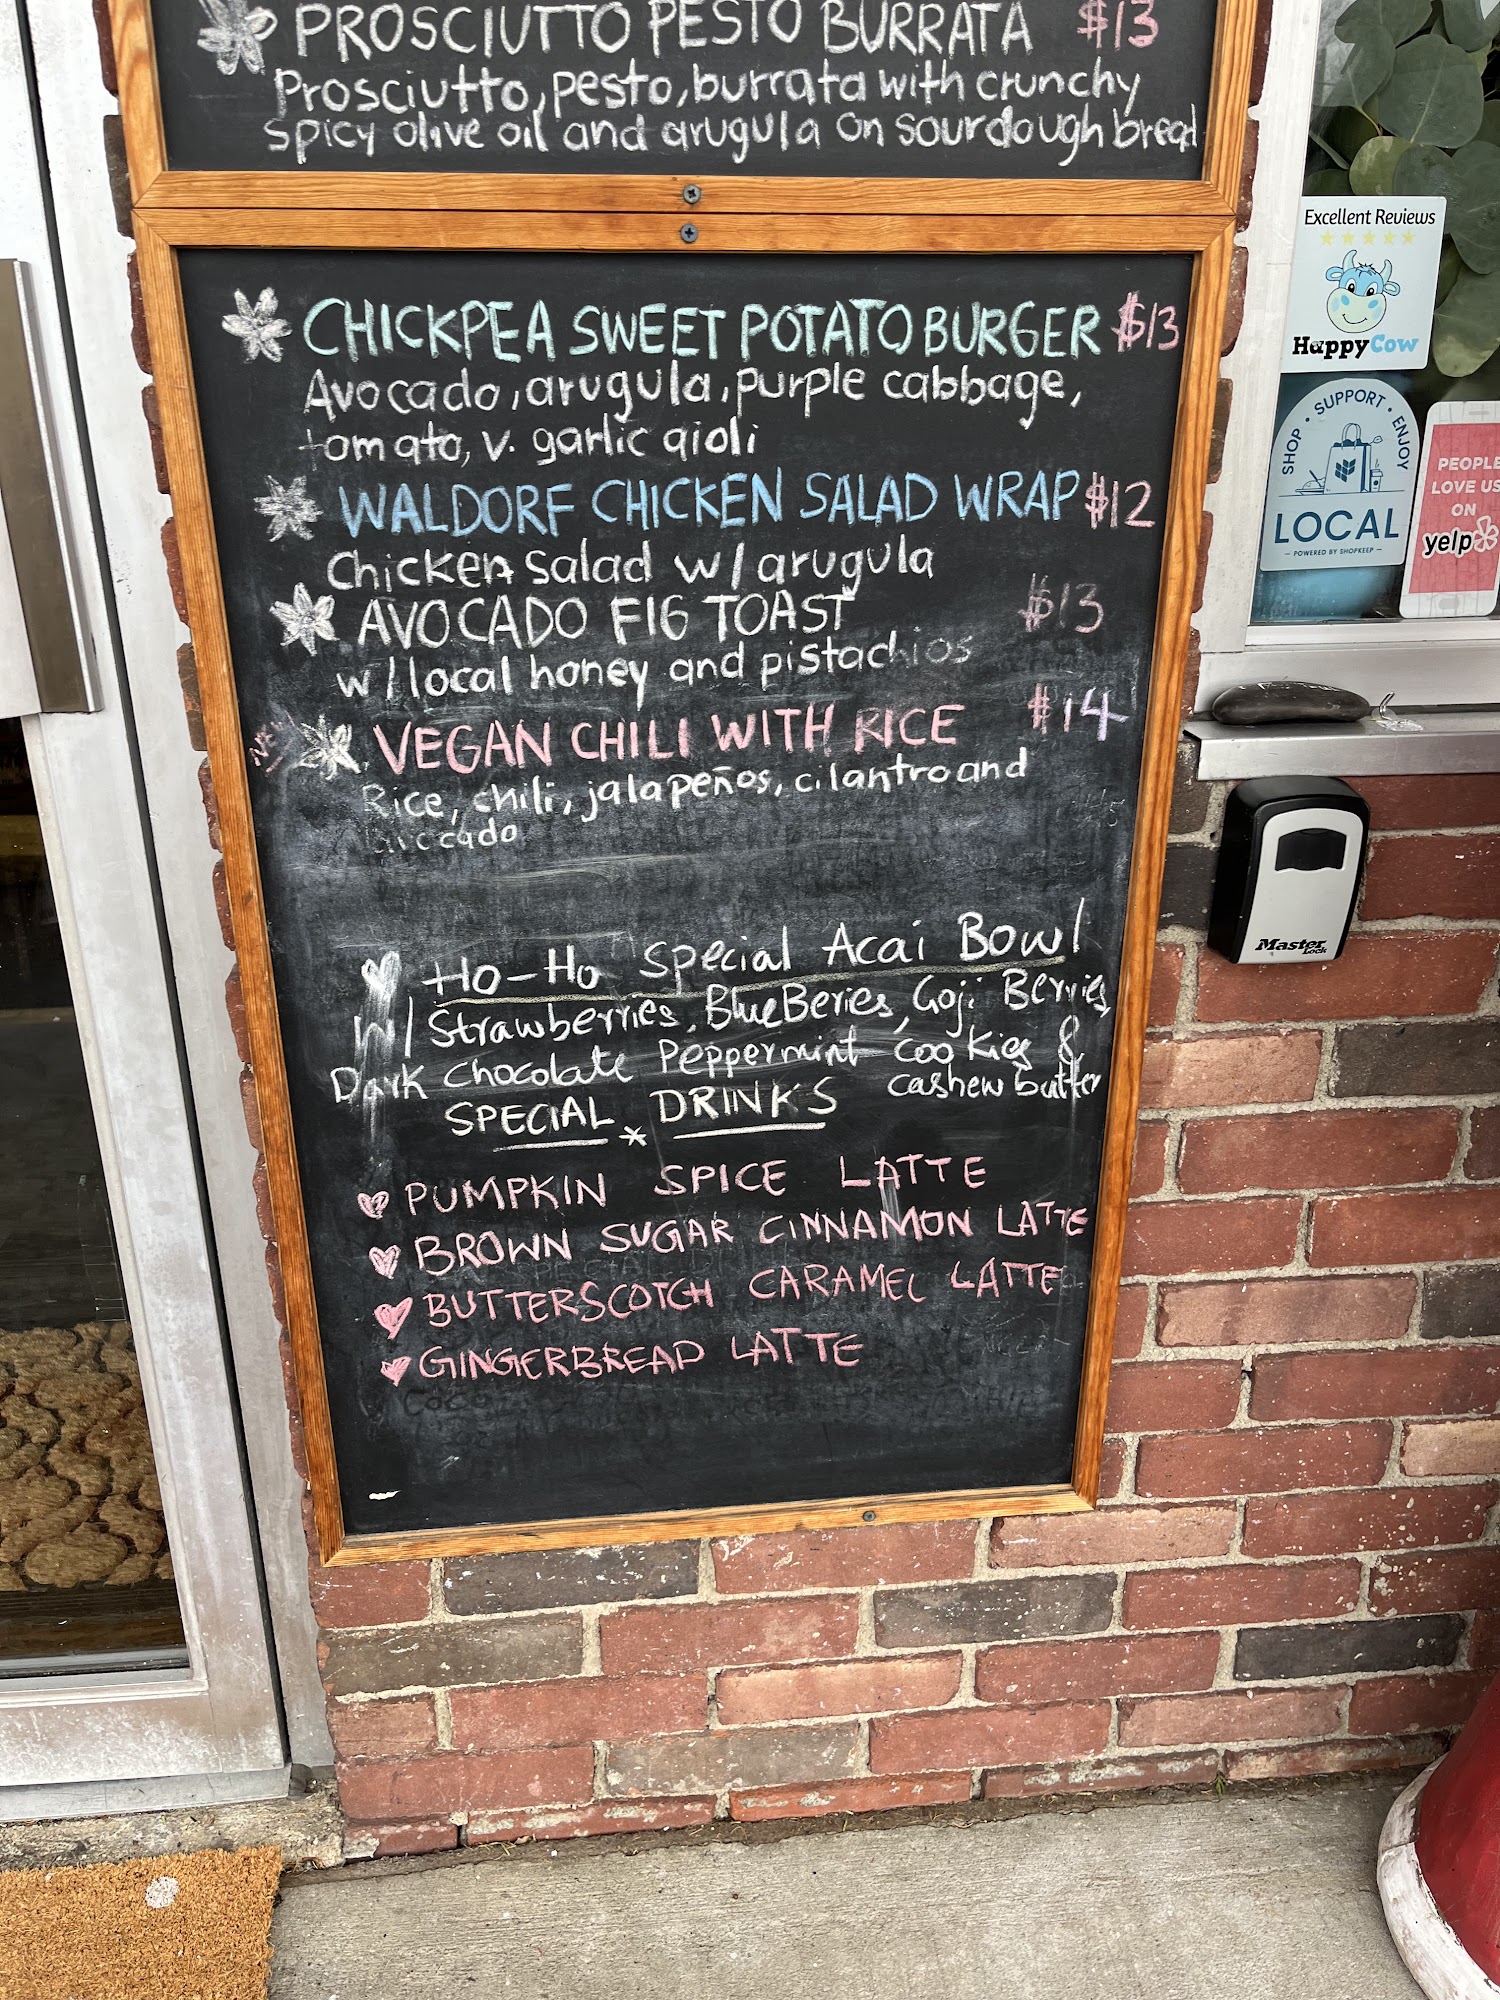 PROSCIUTTO PESTO BURRATA $13
Prosciutto, pesto, burrata with crunchy
spicy olive oil and arugula on sourdough bread
CHICKPEA SWEET POTATO BURGER $13
Avocado, arugula, purple cabbage,
tomato, v. garlic aioli
WALDORF CHICKEN SALAD WRAP $12
Chicken salad w/ arugula
AVOCADO FIG TOAST $13
w/ local honey and pistachios
VEGAN CHILI WITH RICE $14
Rice, chili, jalapeños, cilantro and
avocado
Ho-Ho Special Acai Bowl
w/ Strawberries, BlueBeries, Goji Berries,
Dark Chocolate Peppermint Cookies &
cashew butter
SPECIAL DRINKS
PUMPKIN SPICE LATTE
BROWN SUGAR CINNAMON LATTE
BUTTERSCOTCH CARAMEL LATTE
GINGERBREAD LATTE
Excellent Reviews
HappyCow
SHOP • SUPPORT • ENJOY
LOCAL
POWERED BY SHOPKEEP
PEOPLE
LOVE US
ON
yelp
Master
Lock